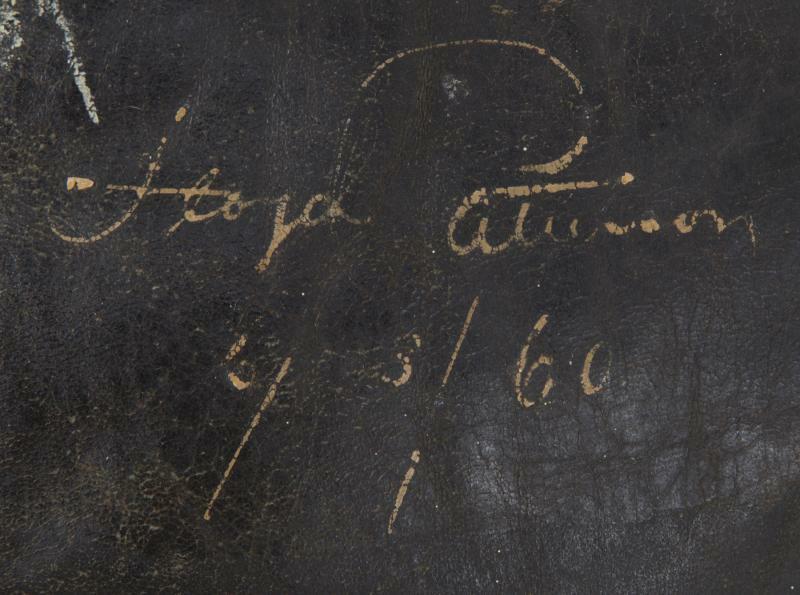 Floyd Patterson
/ 60